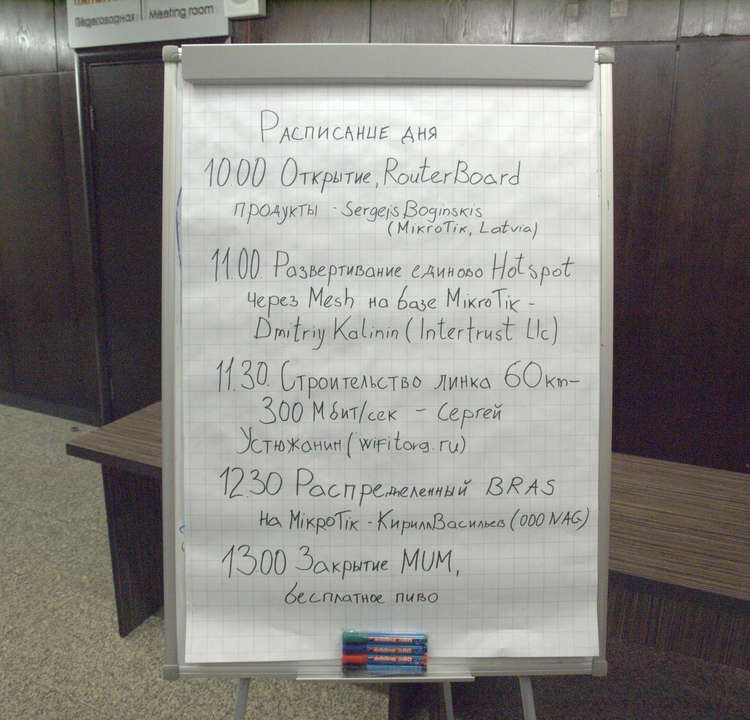 Переговорная | Meeting room
Расписание дня
10.00 Открытие, RouterBoard
продукты - Sergejs Boginskis
(MikroTik, Latvia)
11.00. Развертивание единово Hotspot
через Mesh на базе MikroTik -
Dmitriy Kalinin (Intertrust Llc)
11.30. Строительство линка 60km-
300 Мбит/сек - Сергей
Устюжанин (wifitorg.ru)
12.30 Распределенный BRAS
на MikroTik - Кирилл Васильев (ООО NAG)
13.00 Закрытие MUM,
бесплатное пиво